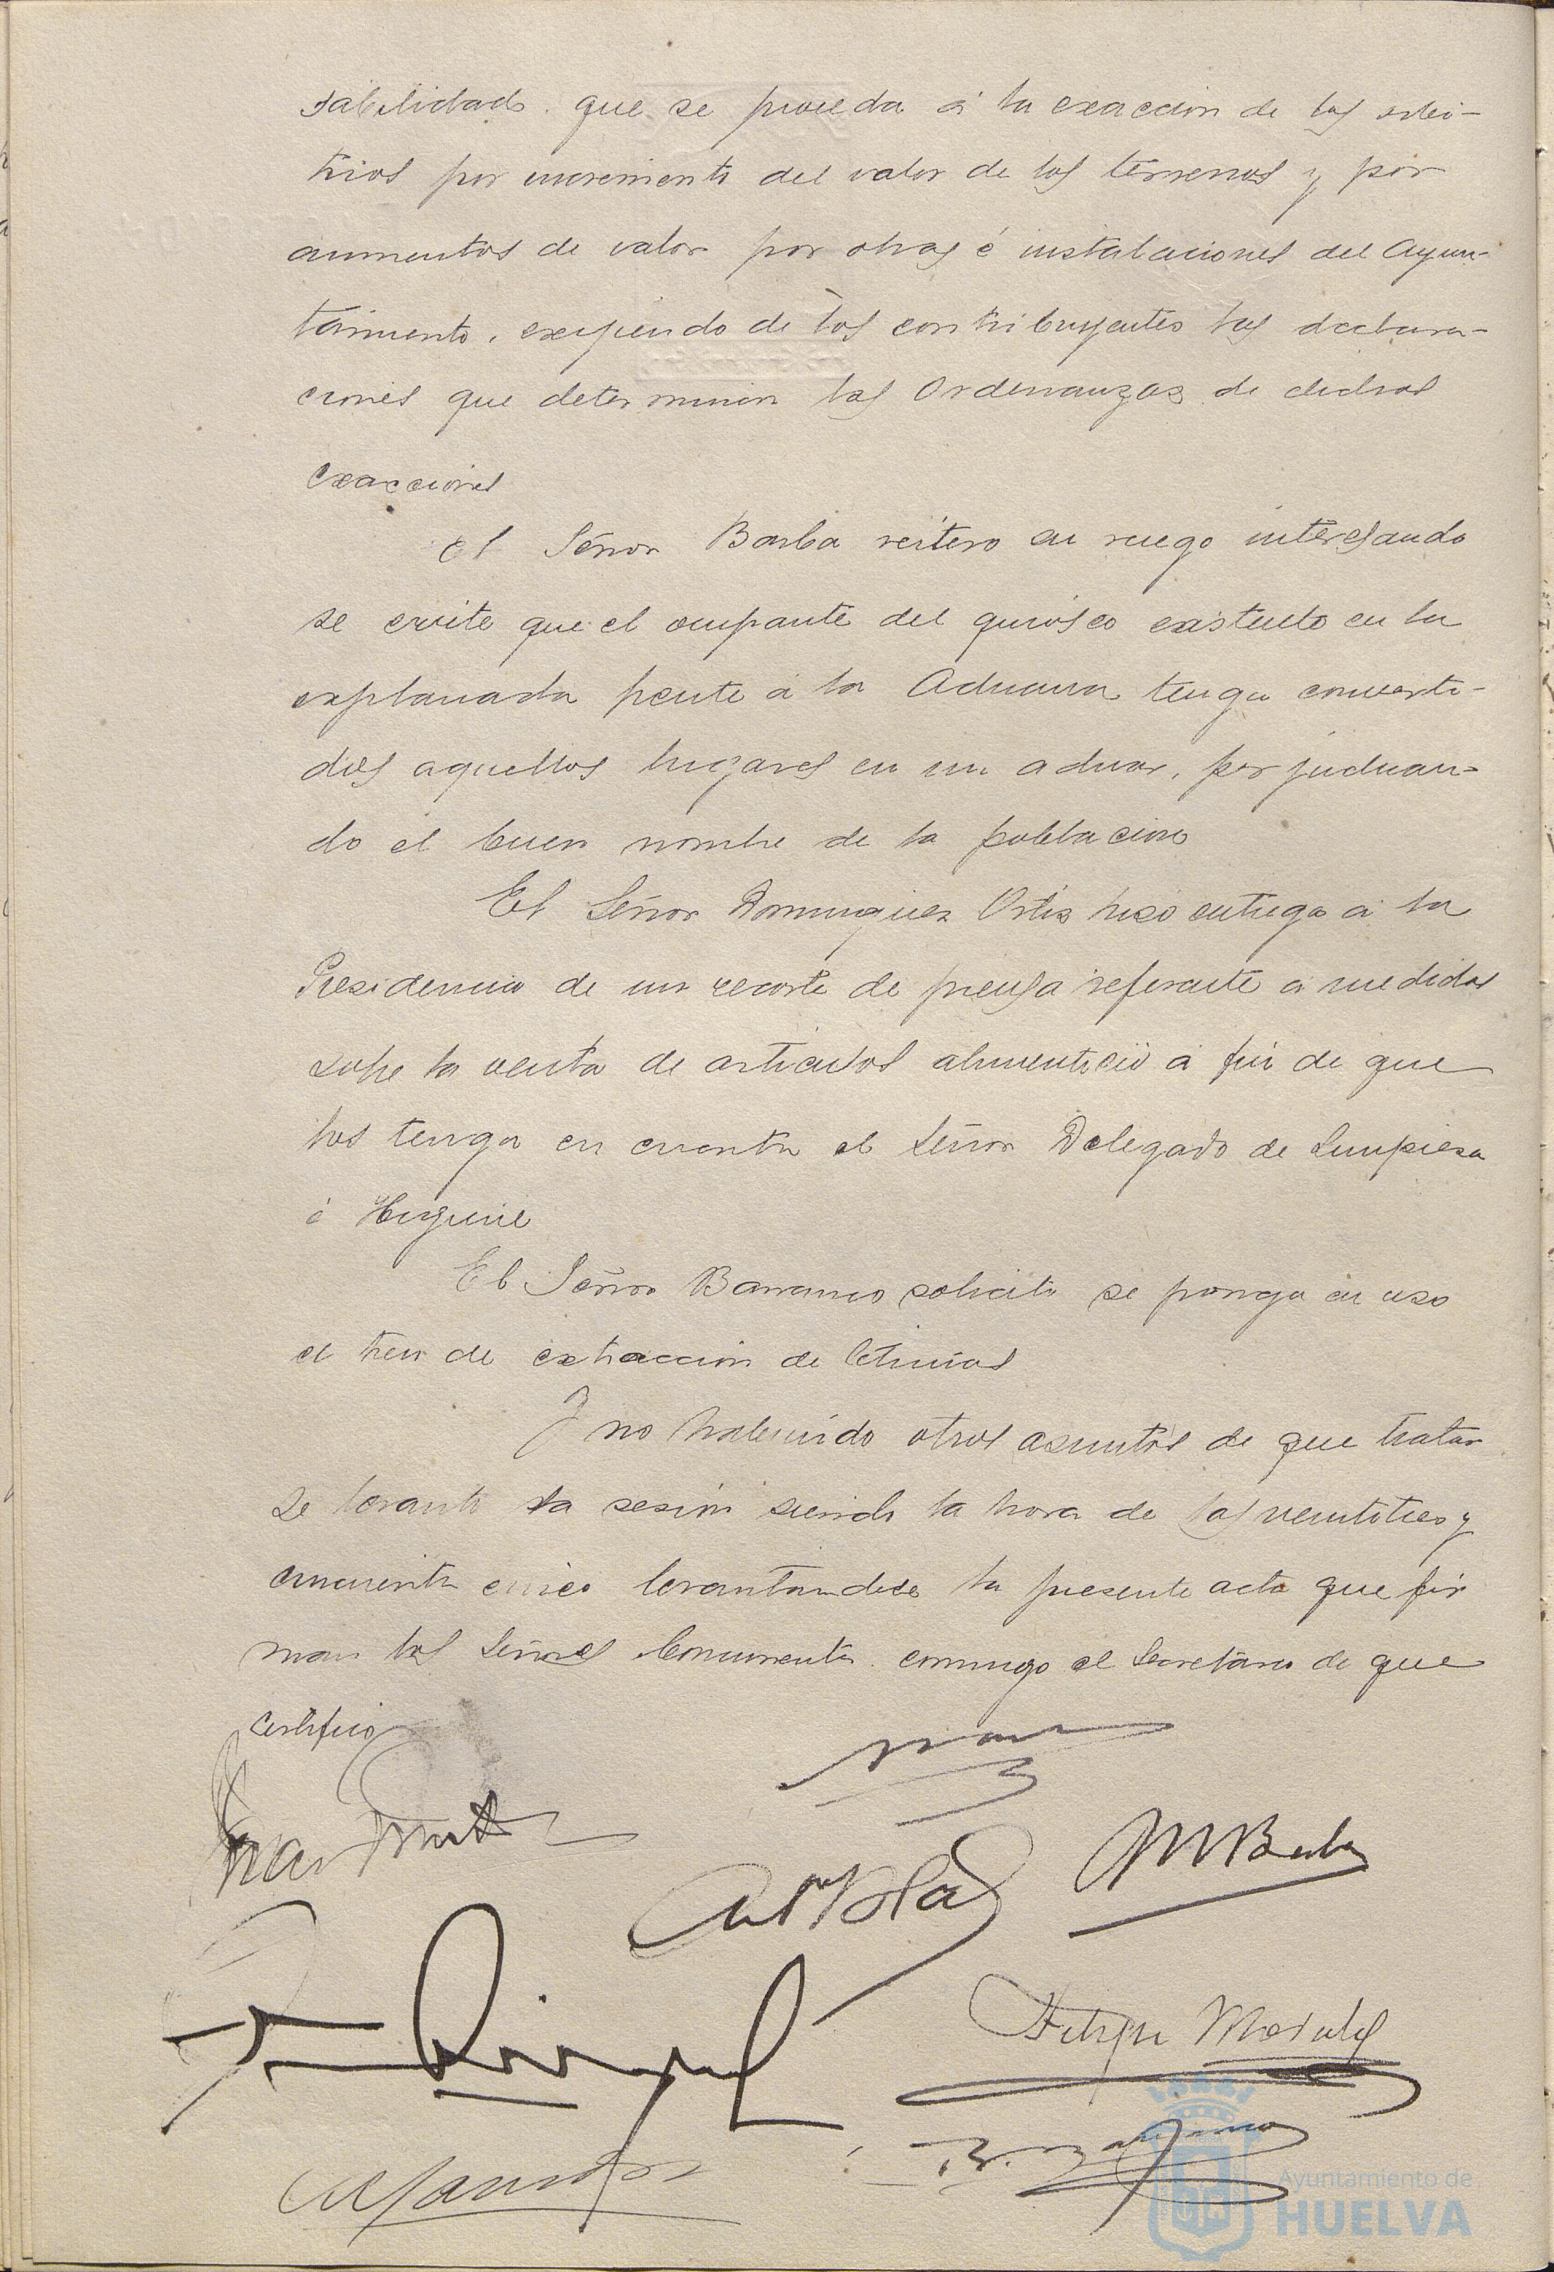 sabilidad que se proceda á la exacción de los arbi-
trios por incremento del valor de los terrenos y por
aumentos de valor por obras é instalaciones del Ayun-
tamiento, exigiendo de los contribuyentes las declara-
ciones que determinan las Ordenanzas de dichas
exacciones
El Señor Barba reitero su ruego interesando
se evite que el ocupante del quiosco existente en la
explanada frente a la Aduana tenga converti-
dos aquellos lugares en un aduar, perjudican-
do el buen nombre de la población
El Señor Dominguez Ortiz hizo entrega a la
Presidencia de un recorte de prensa referente a medidas
sobre la venta de articulos alimenticio a fin de que
las tenga en cuenta el Señor Delegado de Limpieza
é Higiene
El Señor Barranco solicita se ponga en uso
el tren de extracción de letrinas
Y no habiendo otros asuntos de que tratar
se levantó la sesión siendo la hora de las veintitres y
cincuenta cinco levantandose la presente acta que fir
man los Señores Concurrentes conmigo el Secretario de que
certifico
M Barba
Felipe Morales
Ayuntamiento de
HUELVA